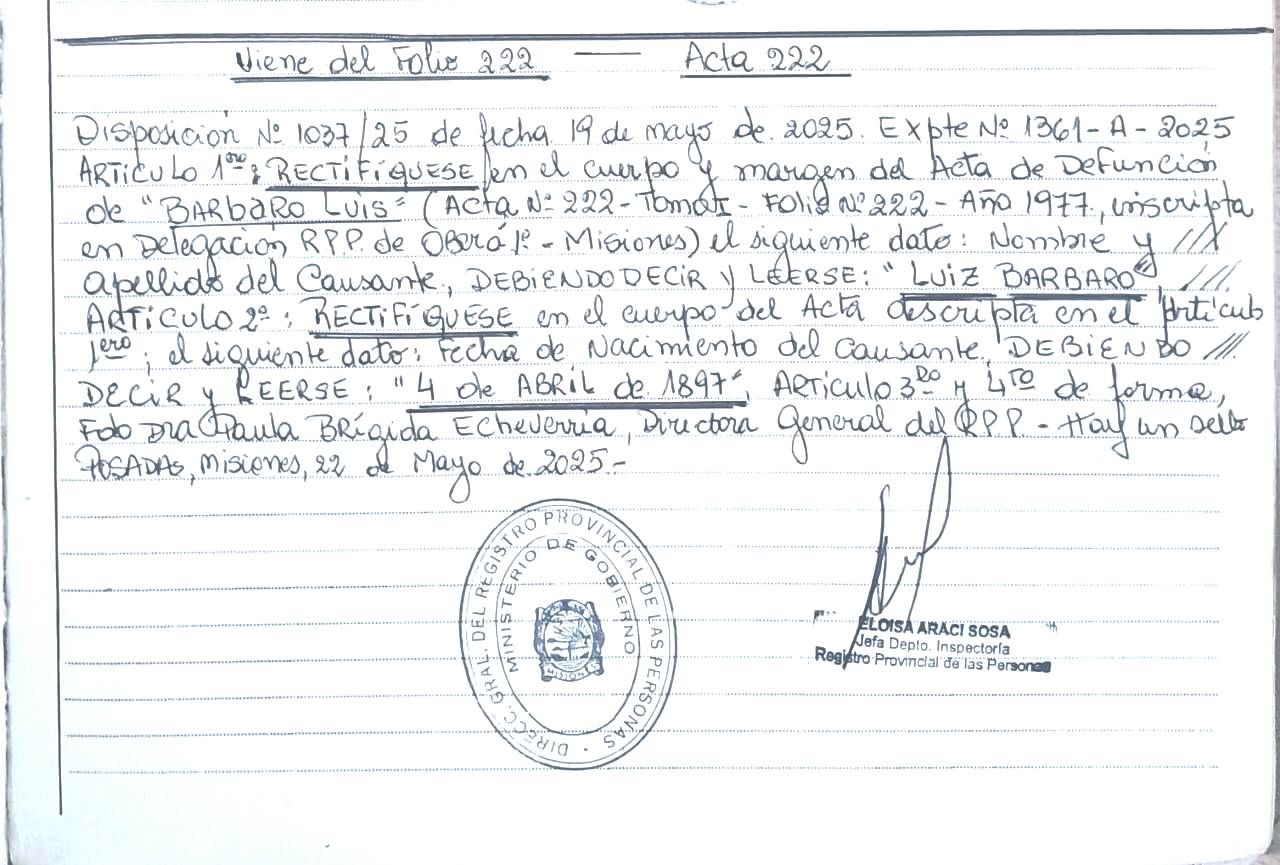 Viene del Folio 222 — Acta 222
Disposición Nº 1037/25 de fecha 19 de mayo de 2025. Expte Nº 1361-A-2025
ARTÍCULO 1ero: RECTIFÍQUESE en el cuerpo y margen del Acta de Defunción
de "BARBARO LUIS" (Acta Nº 222 - Tomo I - Folio Nº 222 - Año 1977, inscripta
en Delegación RPP. de Oberá 1º - Misiones) el siguiente dato: Nombre y ///
Apellido del Causante, DEBIENDO DECIR y LEERSE: "LUIZ BARBARO" ///.
ARTÍCULO 2º: RECTIFÍQUESE en el cuerpo del Acta descripta en el Artículo
1ero; el siguiente dato: Fecha de Nacimiento del Causante, DEBIENDO ///.
DECIR y LEERSE: "4 de ABRIL de 1897", Artículo 3RO y 4TO de forma,
Fdo Dra Paula Brígida Echeverría, Directora General del RPP - Hay un sello
POSADAS, Misiones, 22 de Mayo de 2025.-
DIRECC. GRAL. DEL REGISTRO PROVINCIAL DE LAS PERSONAS
MINISTERIO DE GOBIERNO
MISIONES
ELOISA ARACI SOSA
Jefa Depto. Inspectoría
Registro Provincial de las Personas